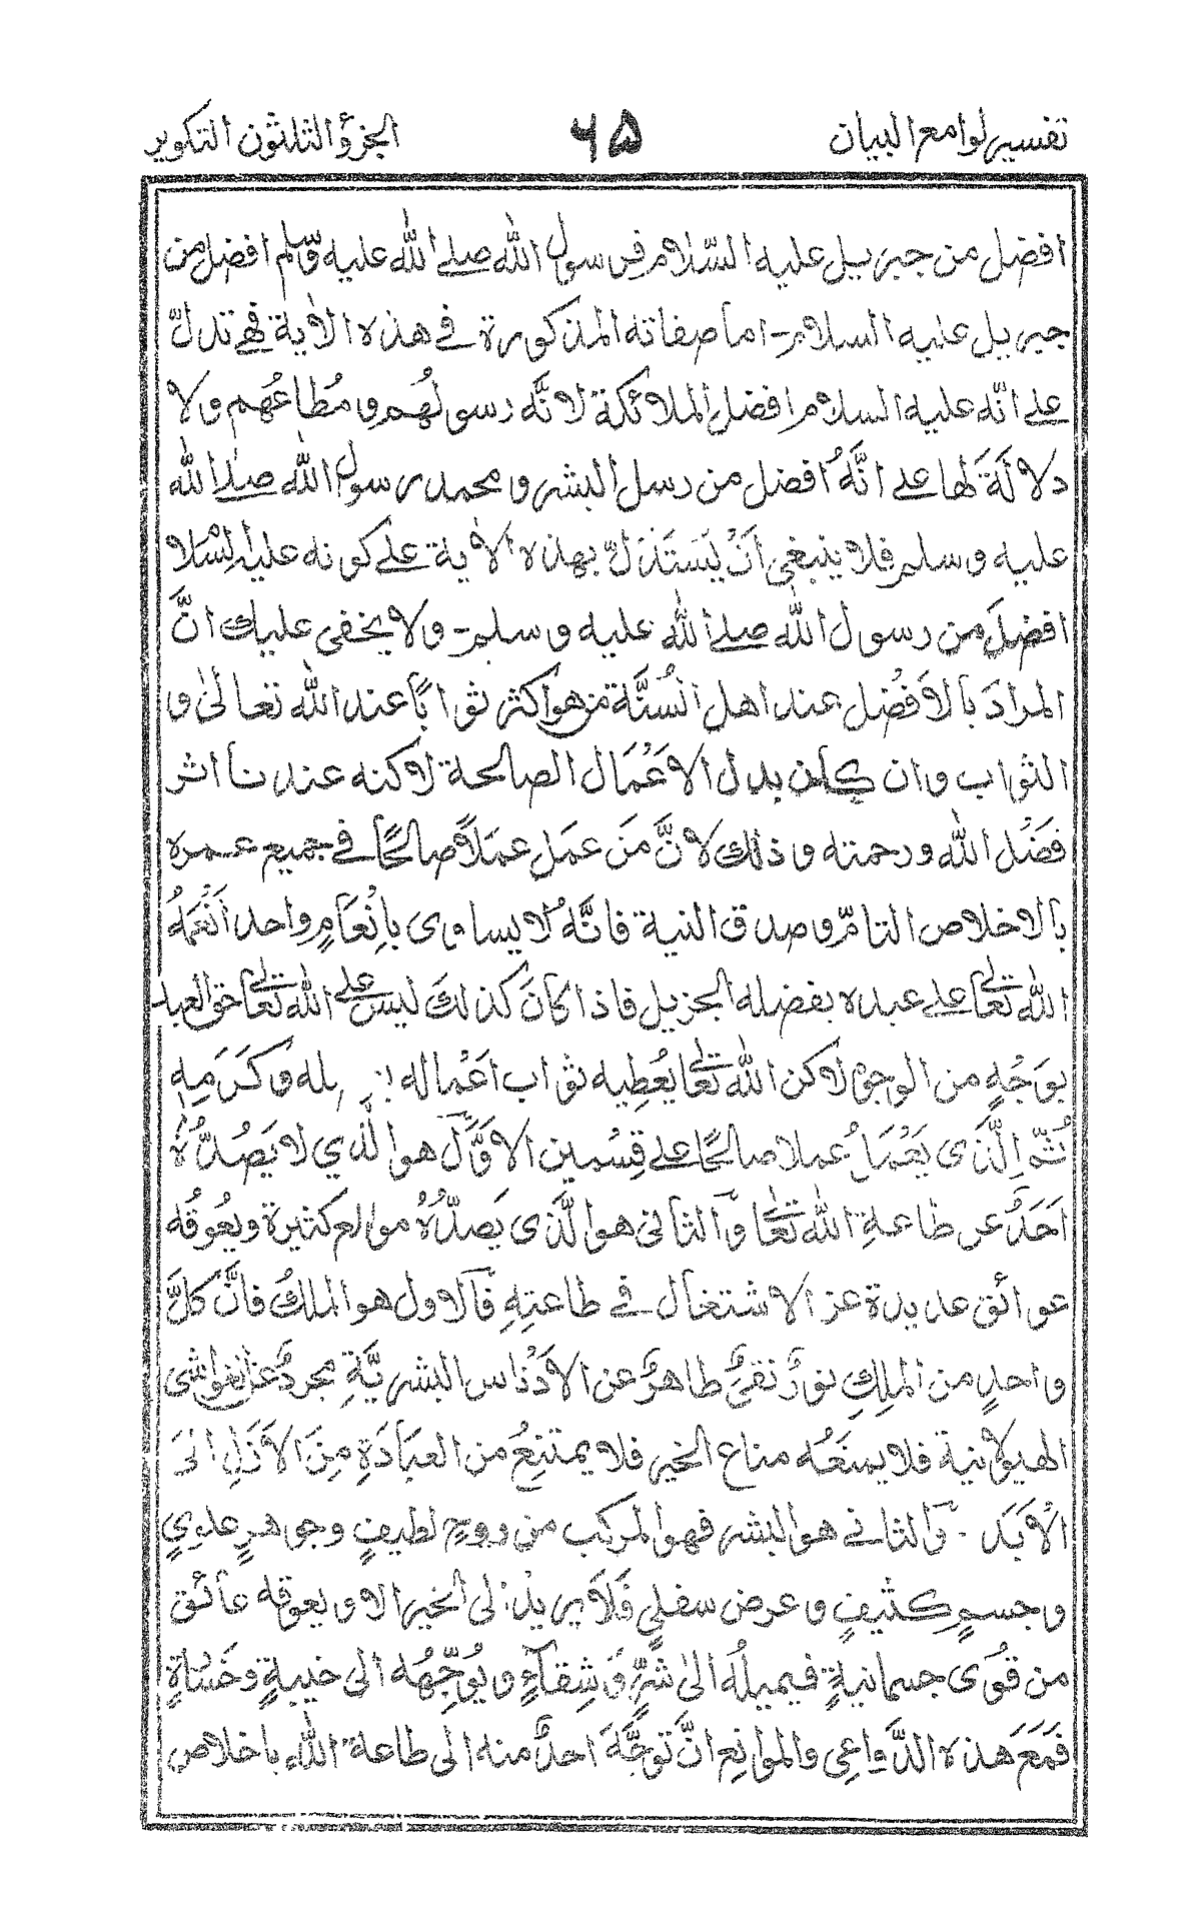 تفسير لوامع البيان ٦٥ الجزؤ الثلثون التكوير
افضل من جبريل عليه السّلام فرسول الله صلى الله عليه وسلم افضل من
جبريل عليه السلام - اما صفاته المذكورة فى هذه الاٰية فهى تدلّ
على انّه عليه السلام افضل الملائكة لانَّه رسولهُم ومُطاعهُم ولا
دلالَةَ لها على انَّهُ افضل من رسل البشر ومحمد رسول الله صلى الله
عليه وسلم فلا ينبغى اَنْ يَستَدَلّ بهذه الاٰية على كونه عليه السّلام
افضلَ من رسول الله صلى الله عليه وسلم - ولا يخفى عليك انَّ
المرادَ بالافضل عند اهل السُنَّة من هو اكثر ثوابًا عند الله تعالىٰ و
الثواب وان كان بدل الاَعْمَال الصالحة لاكنه عندنا اثر
فَضْل الله ورحمته وذلك لانَّ مَن عمَل عمَلًا صالحًا فى جميع عمره
بالاخلاص التامّ وصدق النية فانَّهُ لا يساوى بانِعَامٍ واحد اَنْعَمَهُ
الله تعالى على عبده بفضله الجزيل فاذا كانَ كذلك ليس على الله تعالى حق العبد
بوَجْهٍ من الوجوه لاكن الله تعالى يُعطِيه ثواب اَعْماله وكَرَمِهٖ
ثُمّ الَّذى يَعْمَلُ عملا صالحًا على قِسْمين الاَوَّل هو الَّذي لا يَصُدُّهٗ
اَحَدٌ عن طاعةِ الله تعالى والثانى هو الَّذى يَصدُّهُ موانع كثيرة ويعُوقُه
عوائق عديدة عن الاشتغال فى طاعتِهٖ فالاول هو الملكُ فانَّ كلَّ
واحدٍ من الملِكِ نورٌ نقىٌّ طاهرٌ عن الاَدْناس البشريَّةِ مجردٌ عن الغواشى
الهيولانية فلا يمنَعُه مناع الخير فلا يمتنِعُ من العبَادَةِ مِنَ الاَزَلِ الىَ
الاَبَد - والثانى هو البشر فهو المركب من روحٍ لطيفٍ وجوهرٍ علوىٍ
وجسمٍ كثيفٍ وعرض سفلىٍ فَلا يريد الى الخير الا ويعوقه عائق
من قوُى جسمانيةٍ فيميلُه الىٰ شرٍّ وَشِقاءٍ ويُوجّهُه الى خيبةٍ وخَسَارةٍ
فمَعَ هذه الدَّواعِى والموانِع انَّ توجَّهَ احدٌ منه الى طاعة الله باخلاص